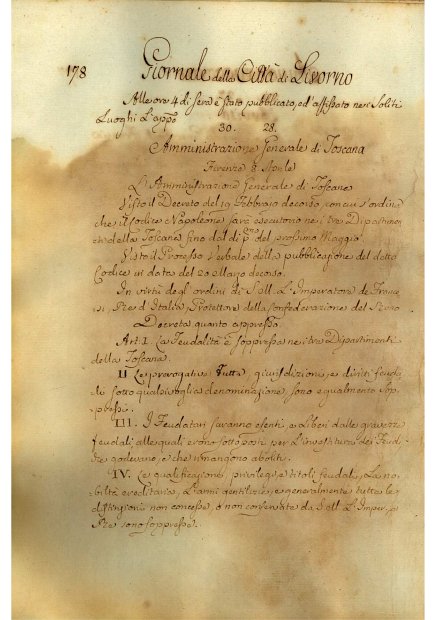 178
Giornale della Città di Livorno
Alle ore 4 di sera è stato pubblicato, ed affissato nei Soliti
Luoghi L'app.o
30. 28.
Amministrazione Generale di Toscana
Firenze Aprile
L'Amministrazione Generale di Toscana
Visto il Decreto del 19 Febbraio decorso, con cui s'ordina
che il Codice Napoleone sarà esecutorio nei tre Dipartimen
ti della Toscana fino dal dì p.mo del prossimo Maggio
Visto il Processo Verbale della pubblicazione del detto
Codice in data del 20 Marzo decorso.
In virtù degl'ordini di S. M. L'Imperatore de France
si, Re d'Italia, Protettore della Confederazione del Reno
Decreta quanto appresso.
Art. I. La Feudalità è soppressa nei tre Dipartimenti
della Toscana.
II Le prerogative tutte, giurisdizioni, e diritti feuda
li sotto qualsivoglia denominazione, sono egualmente sop
presse.
III. I Feudatari saranno esenti, e Liberi dalle gravezze
feudali alle quali erono sottoposti per L'investitura dei Feudi
che godevano, e che rimangono aboliti.
IV. Le qualificazioni, privilegi, e titoli feudali, La no
biltà ereditaria, L'armi gentilizie, e generalmente tutte le
distinzioni non concesse, o non conservate da S. M. L'Imper. e
Re sono soppresse.